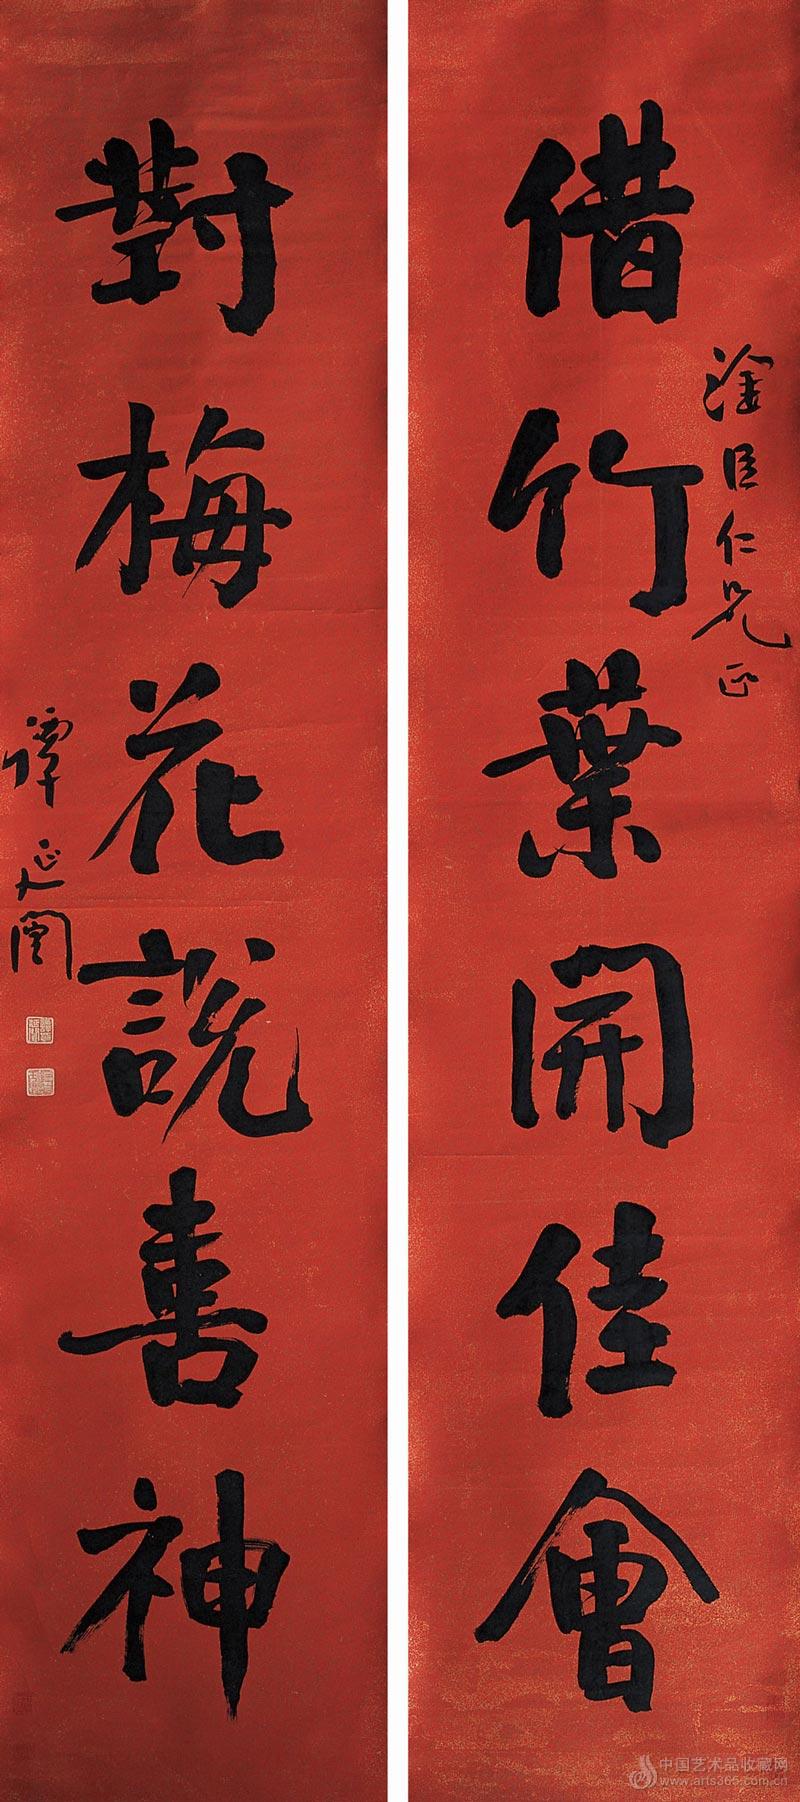 借竹葉開佳會
淦臣仁兄正
對梅花說善神
譚延闓
中国艺术品收藏网
www.arts365.com.cn